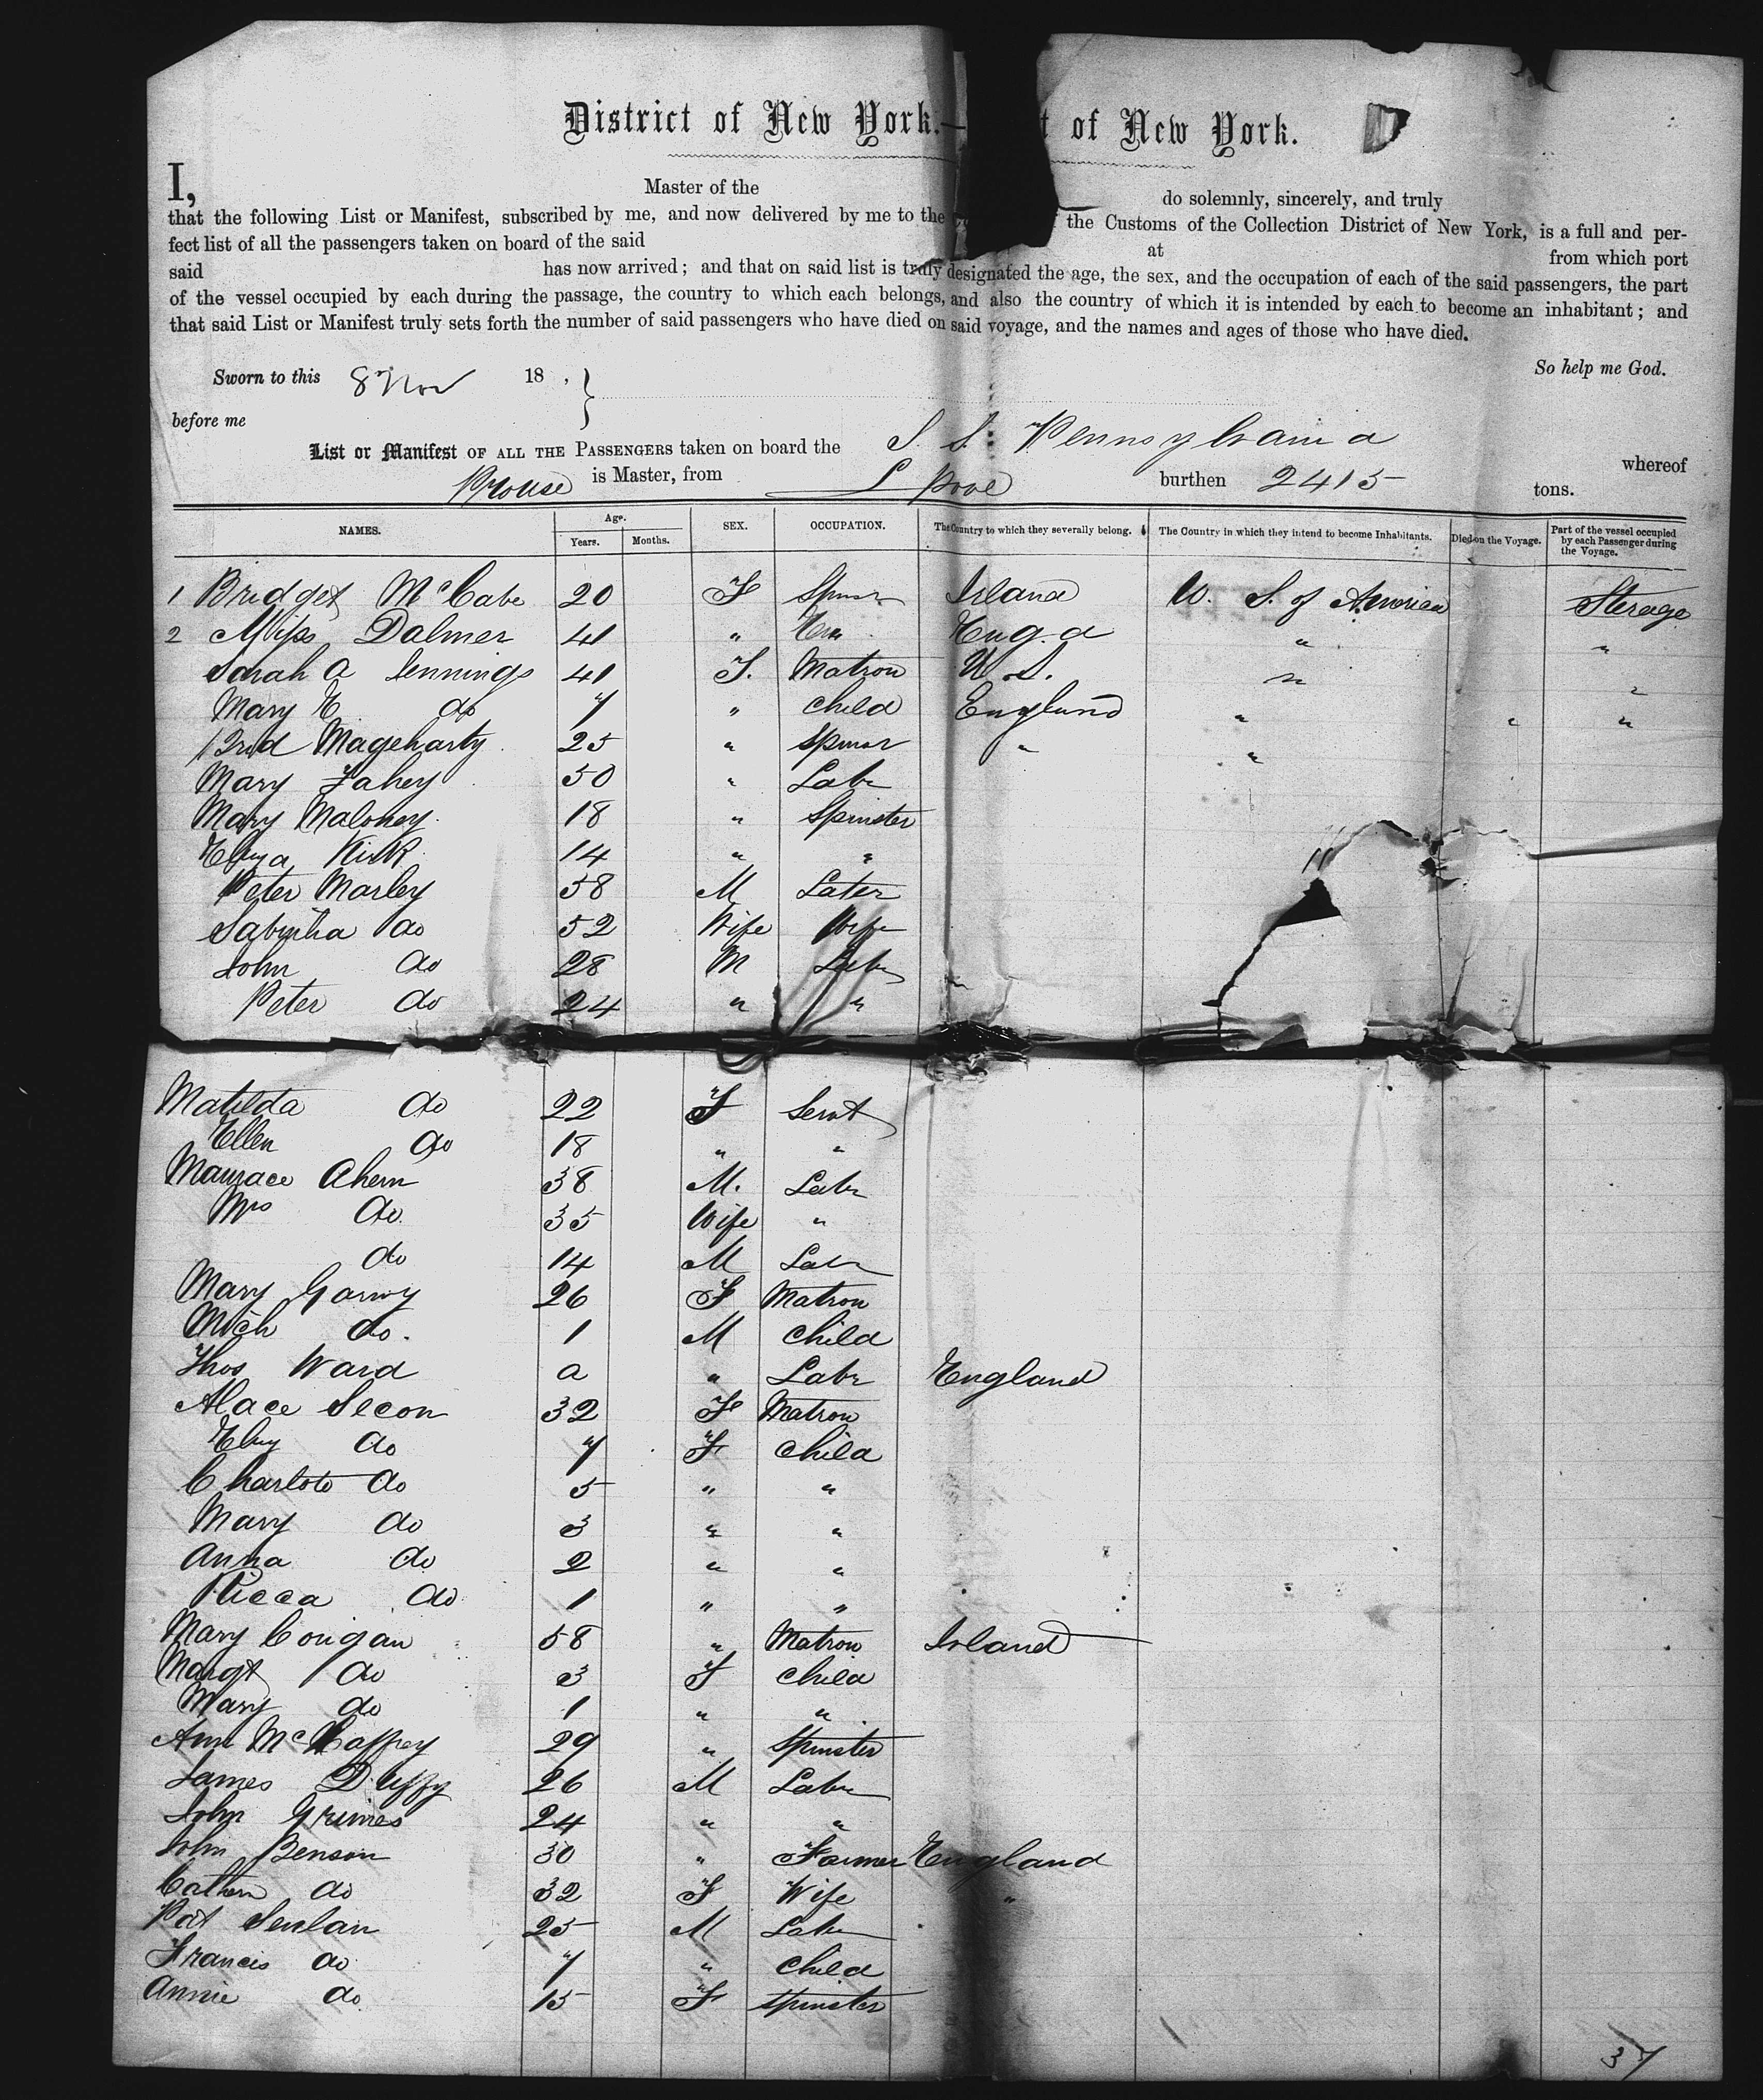 District of New York.— t of New York.
I, Master of the do solemnly, sincerely, and truly
that the following List or Manifest, subscribed by me, and now delivered by me to the the Customs of the Collection District of New York, is a full and per-
fect list of all the passengers taken on board of the said at from which port
said has now arrived; and that on said list is truly designated the age, the sex, and the occupation of each of the said passengers, the part
of the vessel occupied by each during the passage, the country to which each belongs, and also the country of which it is intended by each to become an inhabitant; and
that said List or Manifest truly sets forth the number of said passengers who have died on said voyage, and the names and ages of those who have died.
So help me God.
Sworn to this 8 Nov 18 ,
before me
List or Manifest OF ALL THE PASSENGERS taken on board the S S. Pennsylvania whereof
Prouse is Master, from L pool burthen 2415 tons.
NAMES. Age. Years. Months. SEX. OCCUPATION. The Country to which they severally belong. The Country in which they intend to become Inhabitants. Died on the Voyage. Part of the vessel occupied by each Passenger during the Voyage.
1 Bridget McCabe 20 F Spinsr Ireland U. S. of America Sterage
2 Miss Dalmer 41 " Eng.d " "
Sarah A Jennings 41 F. Matron U.S. " "
Mary E do 7 " Child England " " "
Brid Mageharty 25 " Spinsr " "
Mary Fahey 50 " Labr
Mary Maloney 18 " Spinster
Eliza Kirk 14 " "
Peter Marley 58 M Labr
Sabinha do 52 Wife Wife
John do 28 M Labr
Peter do 24 " "
Matilda do 22 F Servt
Ellen do 18 " "
Maurace Ahern 38 M. Labr
Mrs do 35 Wife "
do 14 M Labr
Mary Garvey 26 F Matron
Mich do. 1 M Child
Thos Ward a " Labr England
Alace Secon 32 F Matron
Elizy do 7 F Child
Charlote do 5 " "
Mary do 3 " "
Anna do 2 " "
Ricca do 1 " "
Mary Corigan 58 " Matron Ireland
Margt do 3 F Child
Mary do 1 " "
Ann McCaffrey 29 " Spinster
James Duffy 26 M Labr
John Grimes 24 " "
John Benson 30 " Farmer England
Cathern do 32 F Wife "
Pat Senlan 25 M Labr
Francis do 7 " Child
Annie do 15 F Spinster
37